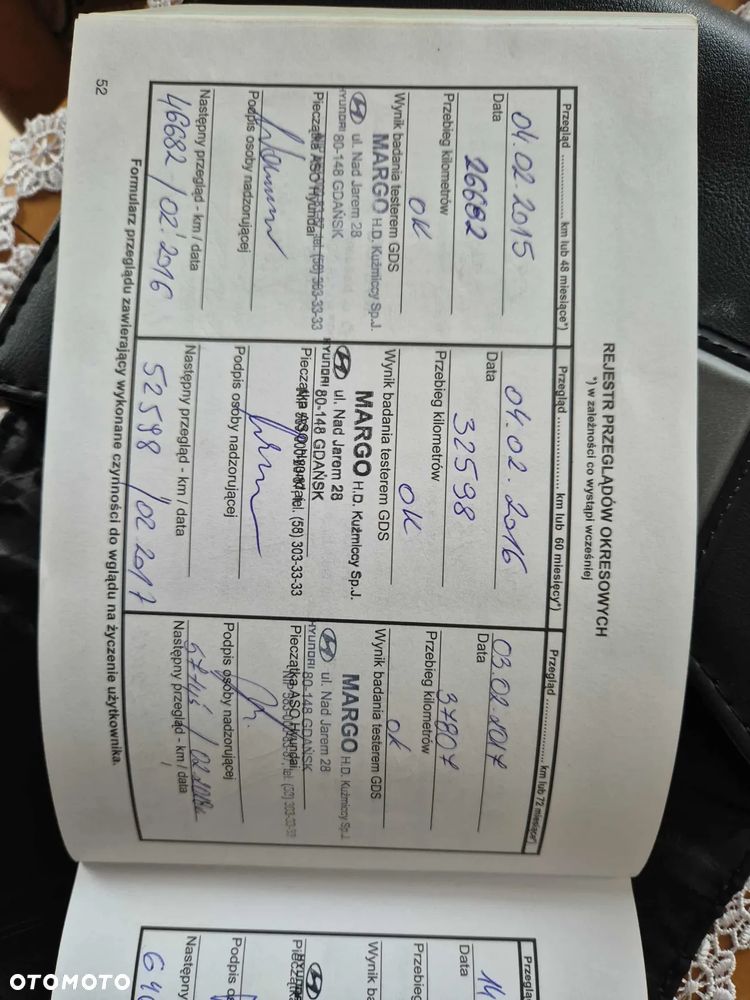 REJESTR PRZEGLĄDÓW OKRESOWYCH
*) w zależności co wystąpi wcześniej
Przegląd .................... km lub 48 miesiące*)
04.02.2015
Data
26682
Przebieg kilometrów
OK
Wynik badania testerem GDS
MARGO H.D. Kuźmiccy Sp.J.
ul. Nad Jarem 28
HYUNDAI 80-148 GDAŃSK
tel. (58) 303-33-33
Pieczątka ASO Hyundai
Podpis osoby nadzorującej
46682 / 02.2016
Następny przegląd - km / data
Przegląd .................... km lub 60 miesięcy*)
04.02.2016
Data
32598
Przebieg kilometrów
OK
Wynik badania testerem GDS
MARGO H.D. Kuźmiccy Sp.J.
ul. Nad Jarem 28
HYUNDAI 80-148 GDAŃSK
tel. (58) 303-33-33
Pieczątka ASO Hyundai
Podpis osoby nadzorującej
52598 / 02 2017
Następny przegląd - km / data
Przegląd .................... km lub 72 miesiące*)
03.02.2017
Data
37807
Przebieg kilometrów
ok
Wynik badania testerem GDS
MARGO H.D. Kuźmiccy Sp.J.
ul. Nad Jarem 28
HYUNDAI 80-148 GDAŃSK
303-33-33
Pieczątka ASO Hyundai
Podpis osoby nadzorującej
Następny przegląd - km / data
Formularz przeglądu zawierający wykonane czynności do wglądu na życzenie użytkownika.
52
Przegląd
14
Data
Przebieg
Wynik ba
HYUNDAI
Pieczątka
Podpis o
640
Następny
OTOMOTO